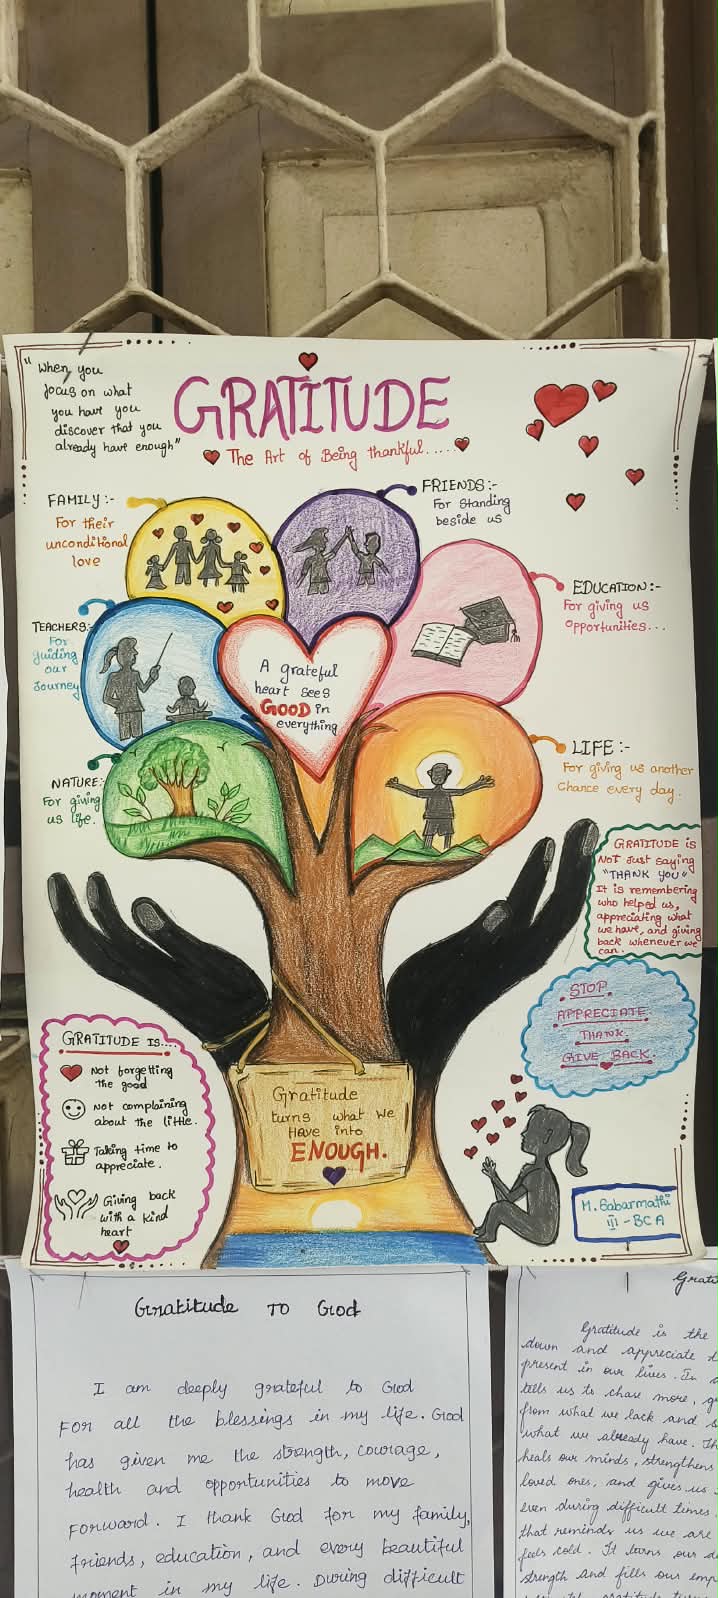 "When you
focus on what
you have you
discover that you
already have enough"
GRATITUDE
The Art of Being thankful.....
FAMILY:-
For their
unconditional
love
FRIENDS:-
For Standing
beside us
TEACHERS:-
For
guiding
our
Journey
EDUCATION:-
For giving us
opportunities...
A grateful
heart sees
GOOD in
everything
NATURE:-
For giving
us life.
LIFE :-
For giving us another
chance every day.
GRATITUDE is
NOT Just saying
"THANK YOU"
It is remembering
who helped us,
appreciating what
we have, and giving
back whenever we
can.
STOP.
APPRECIATE.
THANK.
GIVE BACK.
GRATITUDE IS....
Not forgetting
the good
Not complaining
about the little.
Taking time to
appreciate.
Giving back
with a kind
heart
Gratitude
turns what we
Have into
ENOUGH.
M. Sabarmathi
III - BCA
Gratitude TO God
I am deeply grateful to God
For all the blessings in my life. God
has given me the strength, courage,
health and opportunities to move
Forward. I thank God for my family,
friends, education, and every beautiful
moment in my life. During difficult
Gratitude is the
down and appreciate
present in our lives. In
tells us to chase more,
from what we lack and
what we already have.
heals our minds, strengthens
loved ones, and gives us
even during difficult times.
that reminds us we are
feels cold. It turns our
strength and fills our